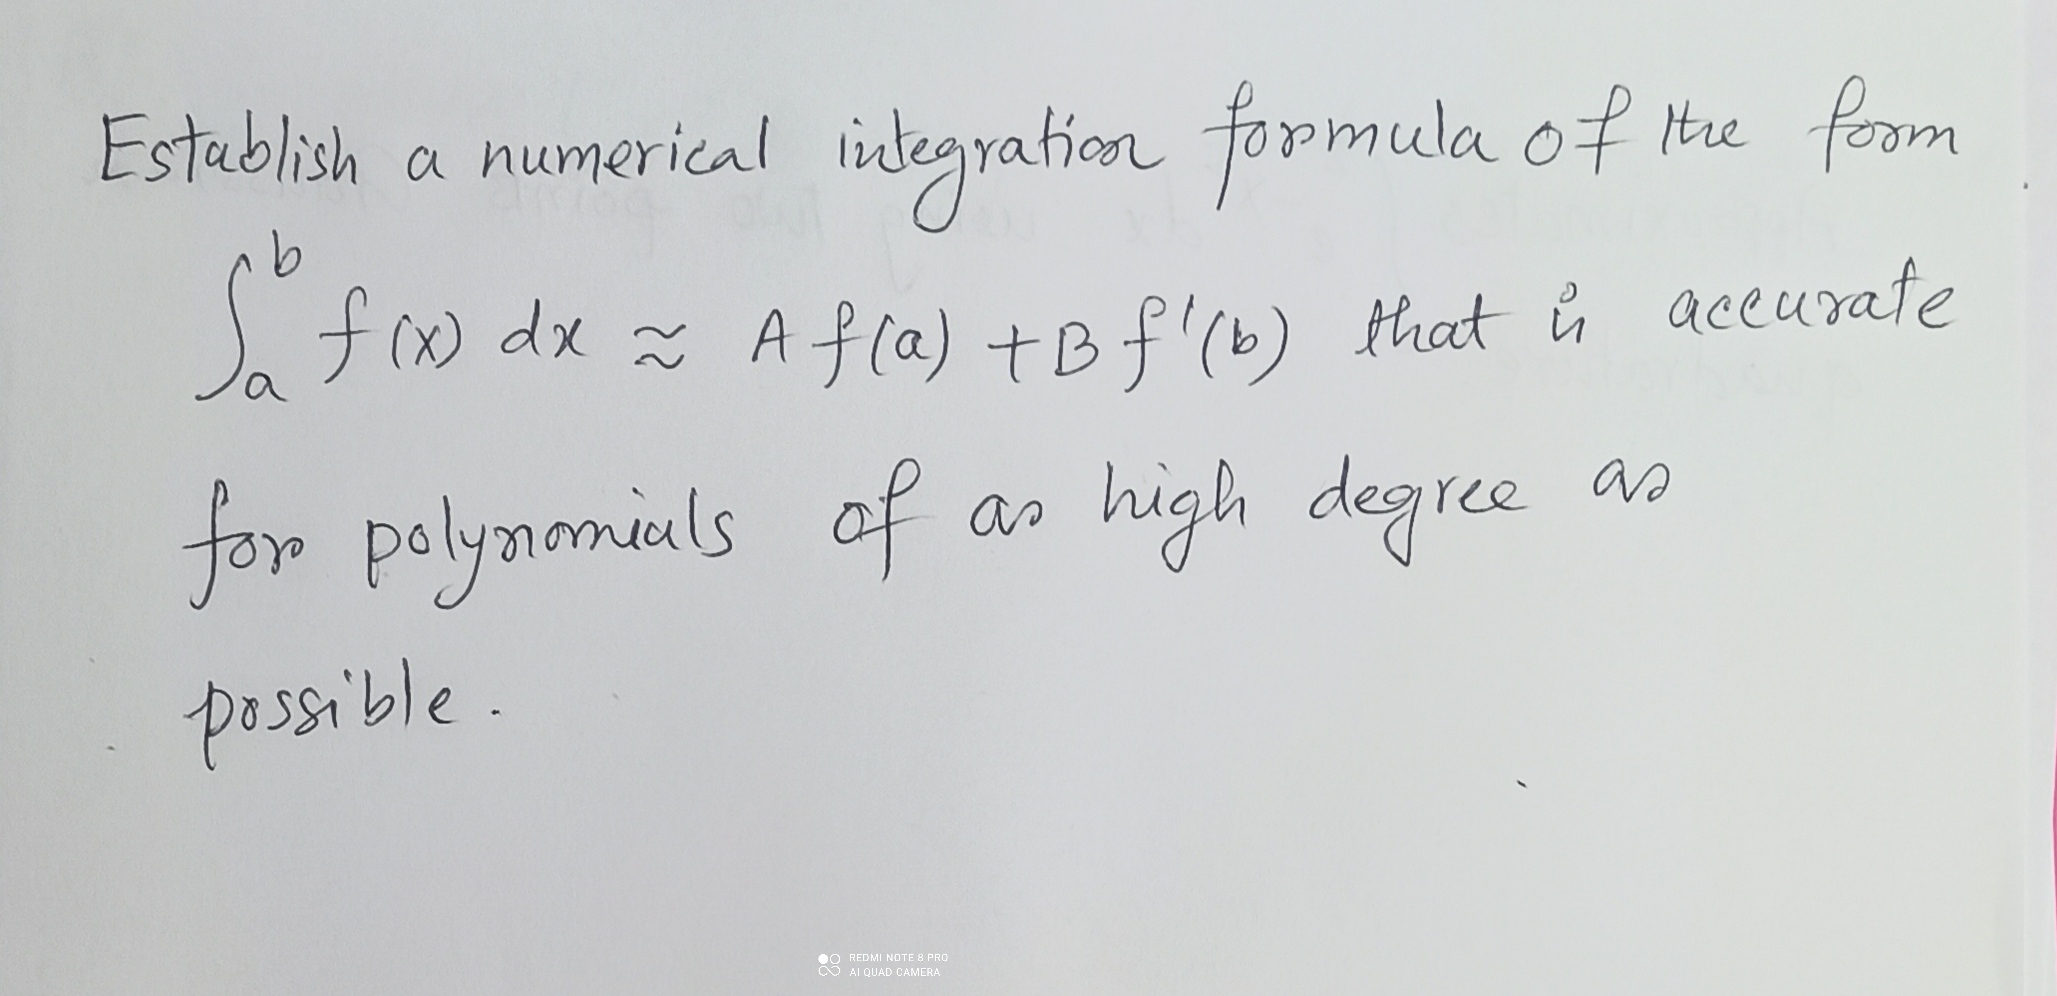 Establish a numerical integration formula of the form
∫_a^b f(x) dx ≈ A f(a) + B f'(b) that is accurate
for polynomials of as high degree as
possible.
REDMI NOTE 8 PRO
AI QUAD CAMERA